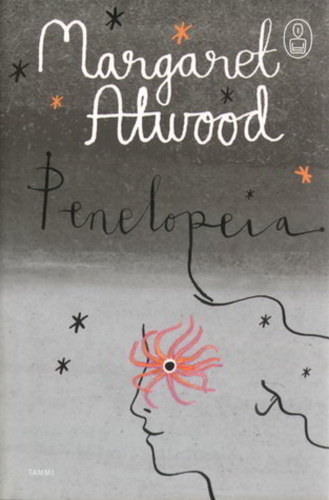 Margaret
Atwood
Penelopeia
TAMMI